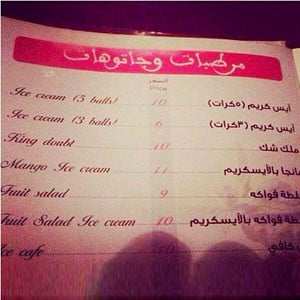 مرطبات وجاتوهات
السعر
Price
Ice cream (5 balls) 10 آيس كريم (٥كرات)
Ice cream (3 balls) 6 آيس كريم (٣كرات)
King doubt 10 ملك شك
Mango Ice cream 11 مانجا بالآيسكريم
Fruit salad 9 فواكه
Fruit Salad Ice cream 10 فواكه بالآيسكريم
Ice cafe